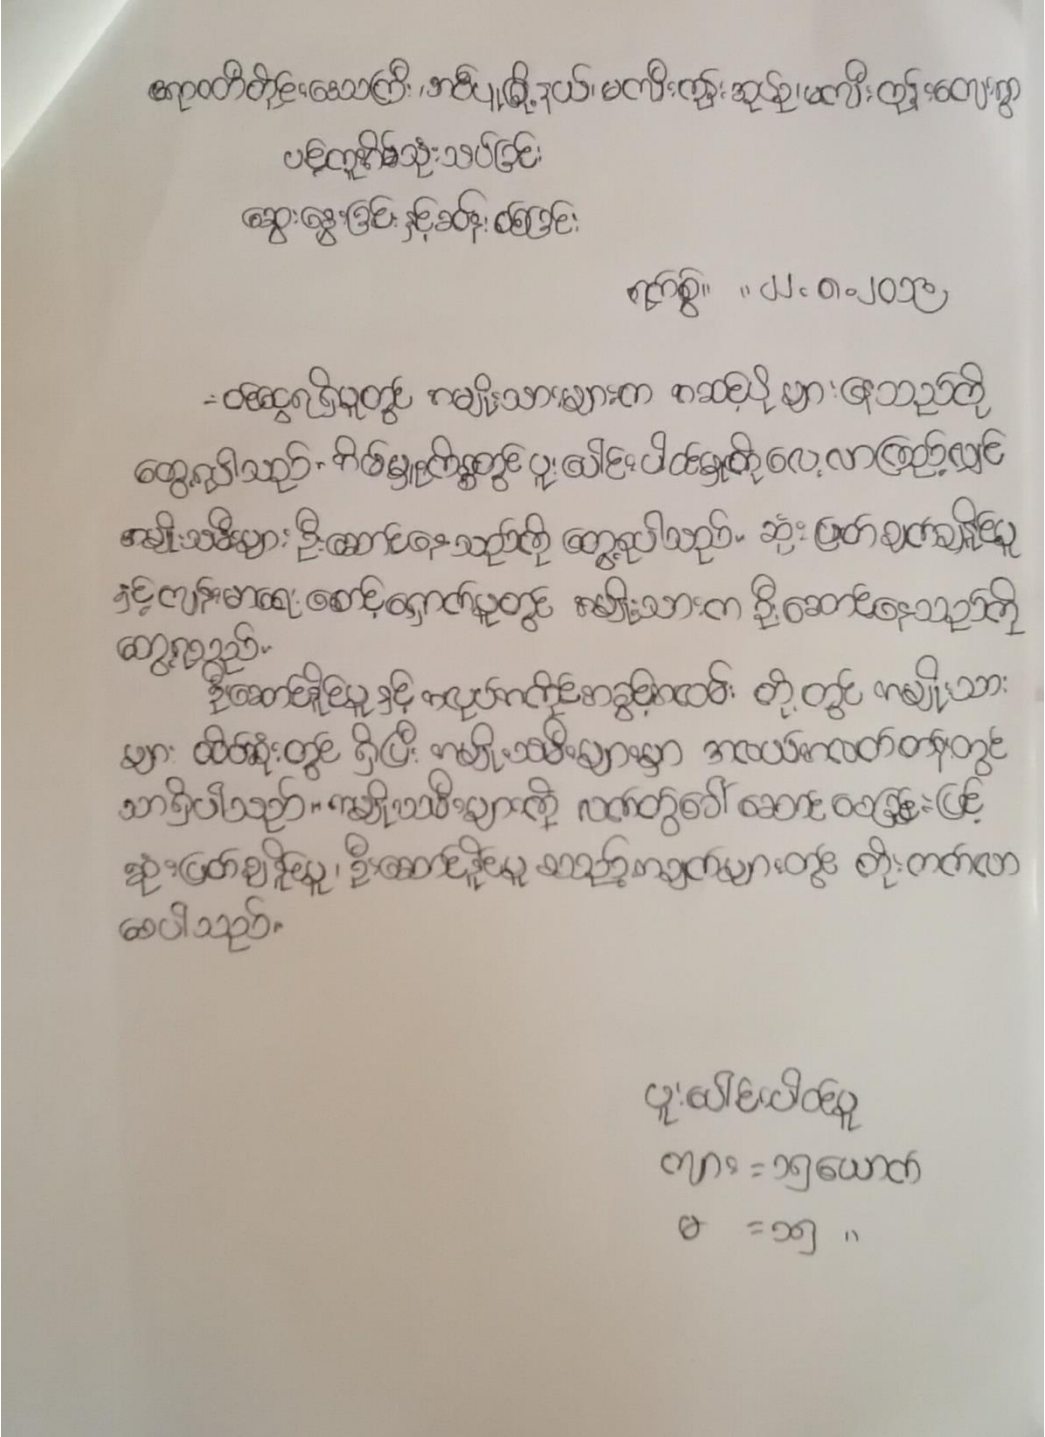 ဧရာဝတီတိုင်းဒေသကြီး၊ ဘိုကလေးမြို့နယ်၊ မကျီးကုန်းအုပ်စု၊ မကျီးကုန်းကျေးရွာ
ပင့်ကူအိမ်သုံးသပ်ခြင်း
ဆွေးနွေးခြင်းနှင့်ခန့်မှန်းခြင်း
ရက်စွဲ။ ။ ၂၂.၈.၂၀၁၉
- ဝင်ငွေရရှိမှုတွင် အမျိုးသားများက အဆင့်ပိုများနေသည်ကို
တွေ့ရပါသည်။ အိမ်မှုကိစ္စတွင် ပူးပေါင်းပါဝင်မှုကိုလေ့လာကြည့်လျှင်
အမျိုးသမီးများ ဦးဆောင်နေသည်ကို တွေ့ရပါသည်။ ဆုံးဖြတ်ချက်ချနိုင်မှု
နှင့်ကျန်းမာရေးစောင့်ရှောက်မှုတွင် အမျိုးသားက ဦးဆောင်နေသည်ကို
တွေ့ရသည်။
ဦးဆောင်နိုင်မှုနှင့် အလုပ်အကိုင်အခွင့်အလမ်း တို့တွင် အမျိုးသား
များ ထိပ်ဆုံးတွင် ရှိပြီး အမျိုးသမီးများမှာ အလယ်အလတ်တန်းတွင်
သာရှိပါသည်။ အမျိုးသမီးများကို လက်တွဲခေါ်ဆောင်ပေးခြင်းဖြင့်
ဆုံးဖြတ်ချနိုင်မှု၊ ဦးဆောင်နိုင်မှု စသည့်အချက်များတွင် တိုးတက်လာ
စေပါသည်။
ပူးပေါင်းပါဝင်မှု
ကျား = ၁၅ယောက်
မ = ၁၅ "